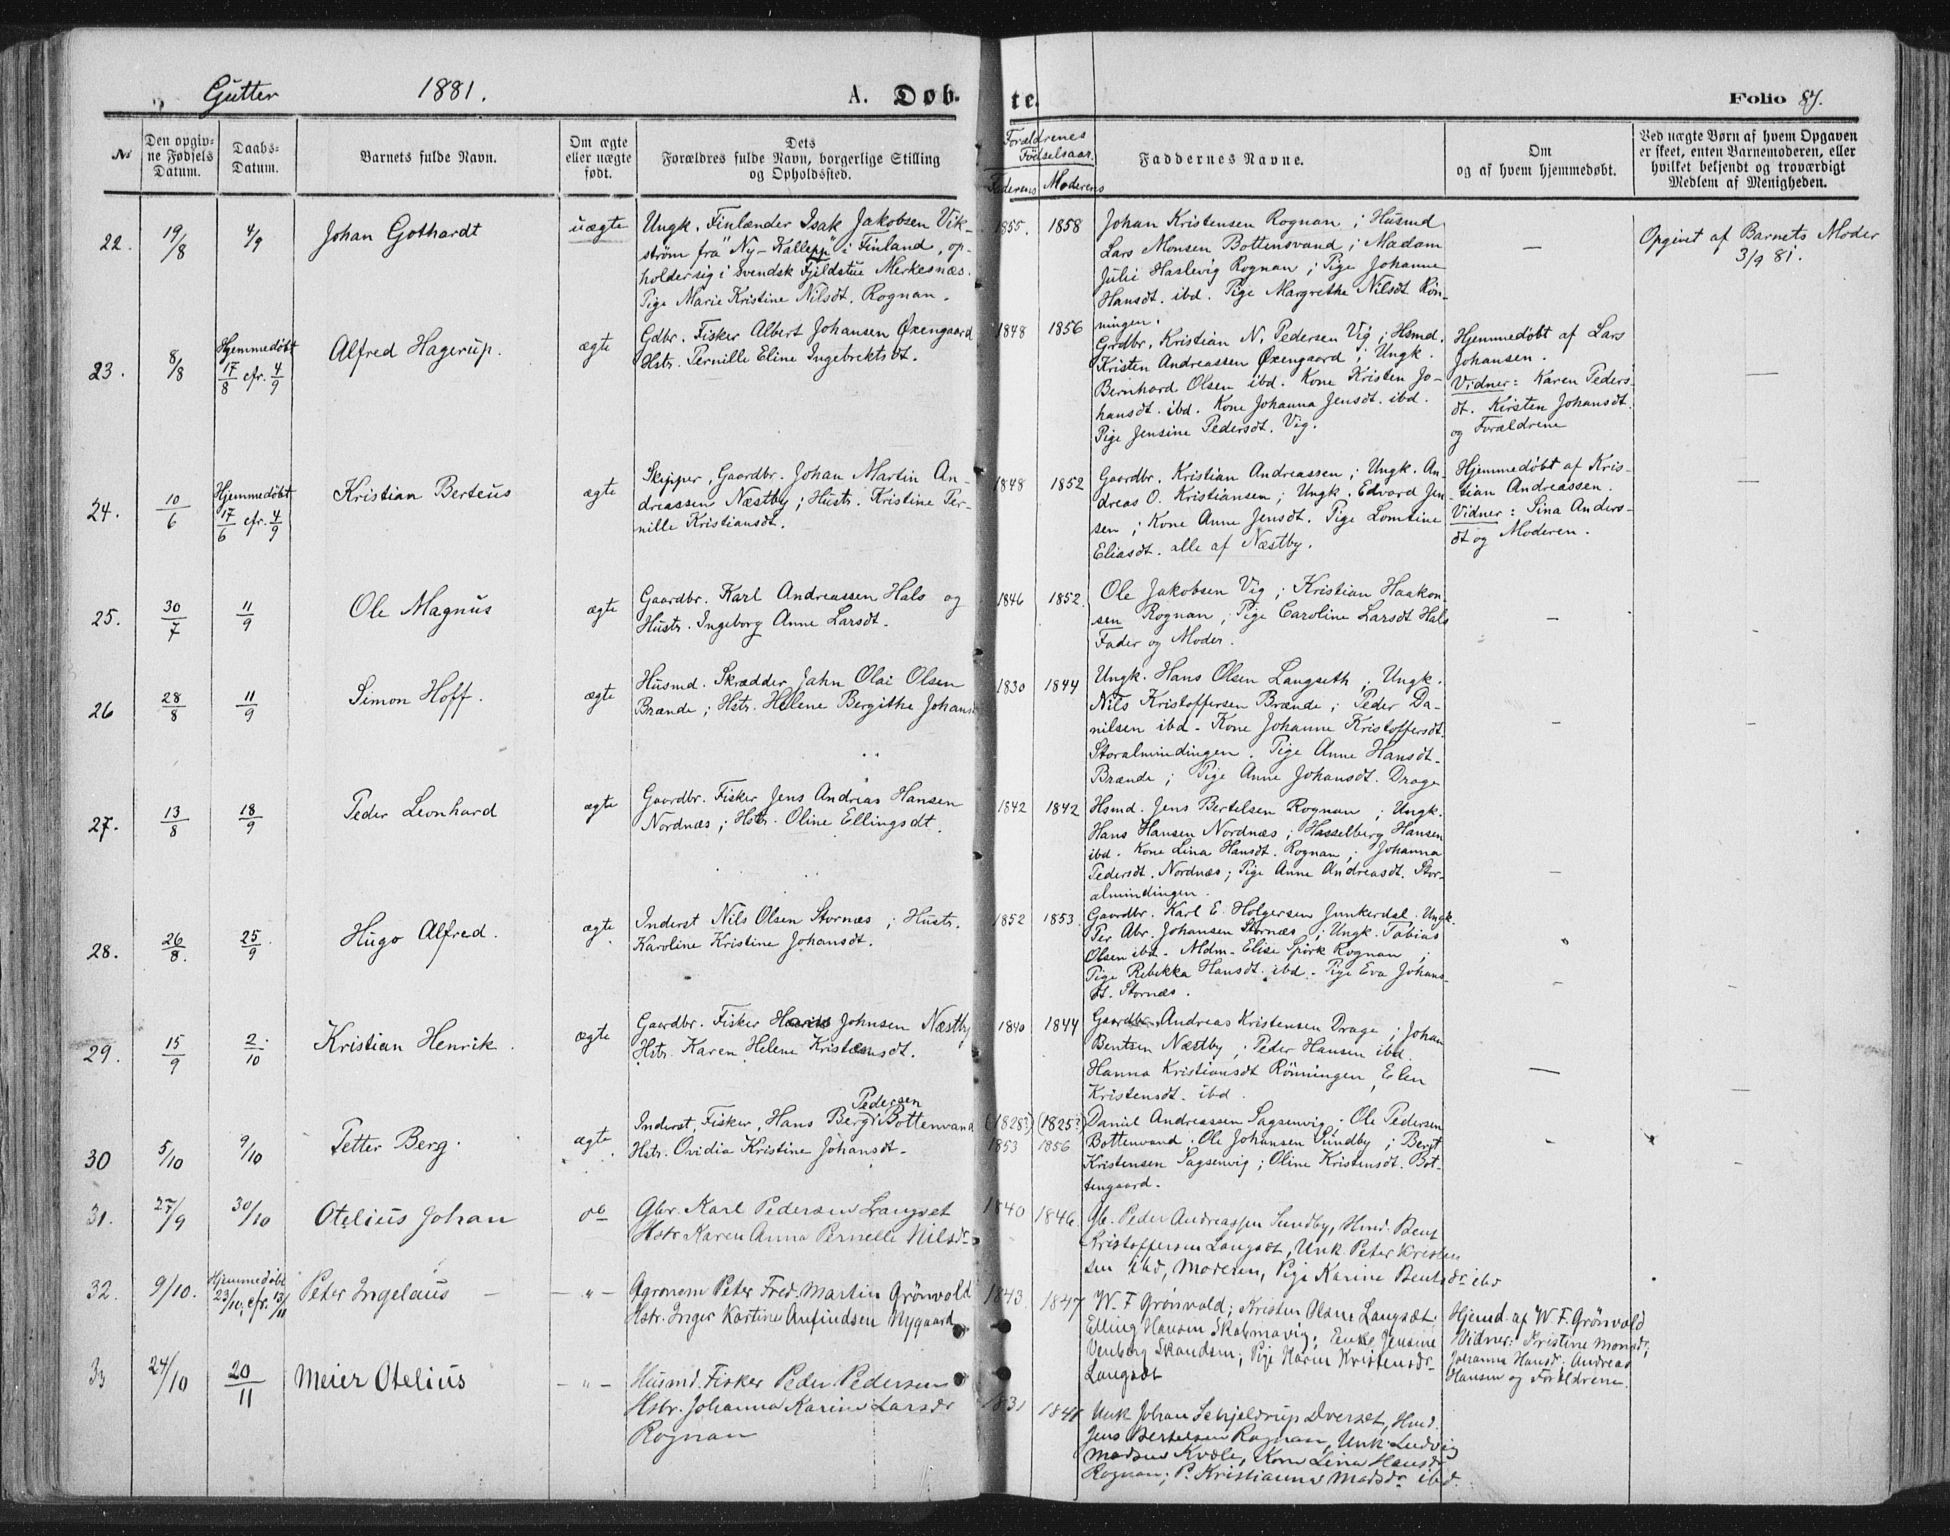 Gutter 1881. A. Døb- te. Folio 87.
No
Den opgiv-
ne Fødsels
Datum.
Daabs-
Datum.
Barnets fulde Navn.
Om ægte
eller uægte
født.
Dets
Forældres fulde Navn, borgerlige Stilling
og Opholdssted.
Forældrenes
Fødselsaar.
Faderens Moderens
Faddernes Navne.
Om
og af hvem hjemmedøbt.
Ved uægte Børn af hvem Opgaven
er skeet, enten Barnemoderen, eller
hvilket bekjendt og troværdigt
Medlem af Menigheden.
22. 19/8 4/9 Johan Gothardt uægte
Ungk. Finlænder Isak Jakobsen Vik-
strøm fra Ny-Kallepp i Finland, op-
holder sig i svendsk Fjeldstue Merkesnæs.
Pige Marie Kristine Nilsdt. Rognan.
1855. 1858
Johan Kristensen Rognan; Husmd
Lars Monsen Bottensvand; Madam
Julie Haslevig Rognan; Pige Johanne
Hansdt. ibd. Pige Margrethe Nilsdt Røn-
ningen.
—
Opgivet af Barnets Moder
3/9 81.
23. 8/8 Hjemmedøbt
17/8 cfr. 4/9
Alfred Hagerup. ægte
Gdbr. Fisker Albert Johansen Øxengaard
Hstr. Pernille Eline Ingebrektsdt.
1848 1856
Grdbr. Kristian N. Pedersen Vig; Hsmd.
Kristen Andreassen Øxengaard; Ungk.
Bernhard Olsen ibd. Kone Kristen Jo-
hansdt. ibd. Kone Johanna Jensdt. ibd.
Pige Jensine Pedersdt. Vig.
Hjemmedøbt af Lars
Johansen.
Vidner: Karen Peders-
dt. Kirsten Johansdt.
og Forældrene
—
24. 10/6 Hjemmedøbt
17/6 cfr. 4/9
Kristian Berteus ægte
Skipper, Gaardbr. Johan Martin An-
dreassen Næstby; Hustr. Kristine Per-
nille Kristiansdt.
1848 1852
Gaardbr. Kristian Andreassen; Ungk. An-
dreas O. Kristiansen; Ungk. Edvard Jen-
sen; Kone Anne Jensdt. Pige Lomtine
Eliasdt. alle af Næstby.
Hjemmedøbt af Kris-
tian Andreassen.
Vidner: Sina Anders-
dt og Moderen.
—
25. 30/7 11/9 Ole Magnus ægte
Gaardbr. Karl Andreassen Hals og
Hustr. Ingeborg Anne Larsdt.
1846 1852.
Ole Jakobsen Vig; Kristian Haakon-
sen Rognan; Pige Caroline Larsdt Hals
Fader og Moder.
—
26 28/8 11/9 Simon Hoff. ægte
Husmd. Skrædder Jahn Olai Olsen
Brænde; Hstr. Helene Bergithe Johans
1830 1844
Ungk. Hans Olsen Langseth; Ungk.
Nils Kristoffersen Brænde; Peder Da-
nilsen ibd. Kone Johanne Kristoffersdt.
Storalmindingen. Pige Anne Hansdt.
Brænde; Pige Anne Johansdt. Drage
27. 13/8 18/9 Peder Leonhard ægte
Gaardbr. Fisker Jens Andreas Hansen
Nordnæs; Hstr. Oline Ellingsdt.
1842 1842
Hsmd. Jens Bertelsen Rognan; Ungk.
Hans Hansen Nordnæs; Hasselberg Hansen
ibd. Kone Lina Hansdt. Rognan; Johanna
Pedersdt. Nordnæs; Pige Anne Andreasdt. Stor-
almindingen.
28. 26/8. 25/9 Hugo Alfred. ægte
Inderst Nils Olsen Stornæs; Hustr.
Karoline Kristine Johansdt.
1852 1853.
Gaardbr. Karl E. Holgersen Junkerdal. Ungk.
Per Abr. Johansen Stornæs; Ungk. Tobias
Olsen ibd. Mdm. Elise Spørk Rognan;
Pige Rebekka Hansdt. ibd. Pige Eva Johans-
dt. Stornæs.
29. 15/9 2/10 Kristian Henrik. ægte
Gaardbr. Fisker Johnsen Næstby
Hstr. Karen Helene Kristensdt.
1840 1844
Gaardbr. Andreas Kristensen Drage; Johan
Bentsen Næstby; Peder Hansen ibd.
Hanna Kristiansdt Rönningen, Elen
Kristensdt. ibd.
—
30 5/10 9/10 Petter Berg. ægte.
Pedersen
Inderst, Fisker, Hans Berg Bottenvand
Hstr. Ovidia Kristine Johansdt.
(1828?) (1825?)
1853 1856
Daniel Andreassen Sagsenvig; Ole Pedersen
Bottenvand; Ole Johansen Sundby; Bergt.
Kristensen Sagsenvig; Oline Kristensdt. Bot-
tengaard.
31. 27/9 30/10 Otelius Johan do
Gbr. Karl Pedersen Langset
Hstr Karen Anna Pernelle Nilsdr
1840 1846
Gb. Peder Andreassen Sundby, Hmd. Bent
Kristoffersen Langsdt, Unk. Peter Kristen-
sen ibd, Moderen, Pige Karine Bentsdr ibd
32. 9/10. Hjemmedøbt
23/10, cfr. 13/11
Peter Ingelaus — — " —
Agronom Peter Fred. Martin Grönvold
Hstr. Inger Kartine Anfindsen Nygaard
1843. 1847
W. F Grönvold; Kristen Olsen Langsæt.
Elling Hansen Skabmavig; Enke Jensine
Venberg Skandsen; Pige Karen Kristensdr
Langsdt
Hjemd. af W. F. Grönvold
Vidner: Kristine Monsdr,
Johanna Hansdr. Andreas
Hansen og Forældrene.
33 24/10 20/11 Meier Otelius — " —
Husmd. Fisker Peder Pedersen
Hstr. Johanna Karine Larsdr
Rognan
1831 1841
Unk Johan Schjeldrup Dverset, Hmd.
Jens Bertelsen Rognan, Unk. Ludvig
Madsen Kvæle, Kone Lina Hansdr
Rognan; P. Kristianne Madsdr ibd.